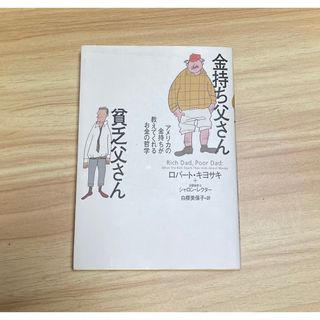 金持ち父さん
貧乏父さん
アメリカの
金持ちが
教えてくれる
お金の哲学
Rich Dad, Poor Dad:
What the Rich Teach Their Kids About Money
ロバート・キヨサキ
シャロン・レクター
白根美保子=訳